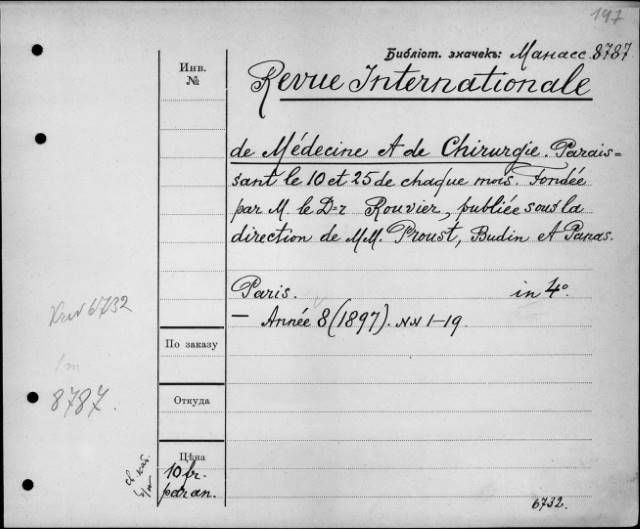 197
Библіот. значекъ: Манасс. 8787
Инв. №
Revue Internationale
de Médecine et de Chirurgie. Parais=
sant le 10 et 25 de chaque mois. Fondée
par M. le D=r Rouvier, publiée sous la
direction de MM. Proust, Budin et Panas.
Paris. in 4°.
— Année 8 (1897). NN 1–19.
6732
1m
8787.
По заказу
Откуда
Цѣна
10 fr.
par an.
6732.